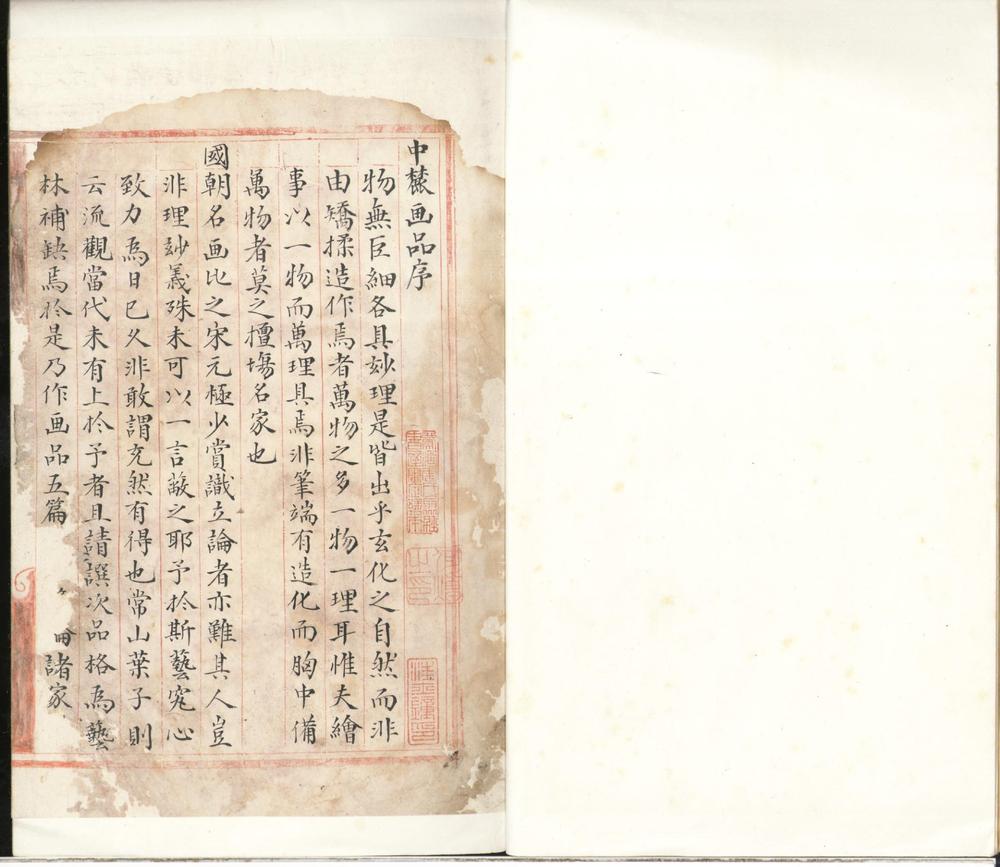 中麓画品序
物無巨細各具妙理是皆出乎玄化之自然而非
由矯揉造作焉者萬物之多一物一理耳惟夫繪
事以一物而萬理具焉非筆端有造化而胸中備
萬物者莫之擅塲名家也
國朝名画比之宋元極少賞識立論者亦難其人豈
非理玅義殊未可以一言蔽之耶予於斯藝究心
致力為日已久非敢謂充然有得也常山葉子則
云流觀當代未有上於予者且請譔次品格為藝
林補缺焉於是乃作画品五篇 冊諸家